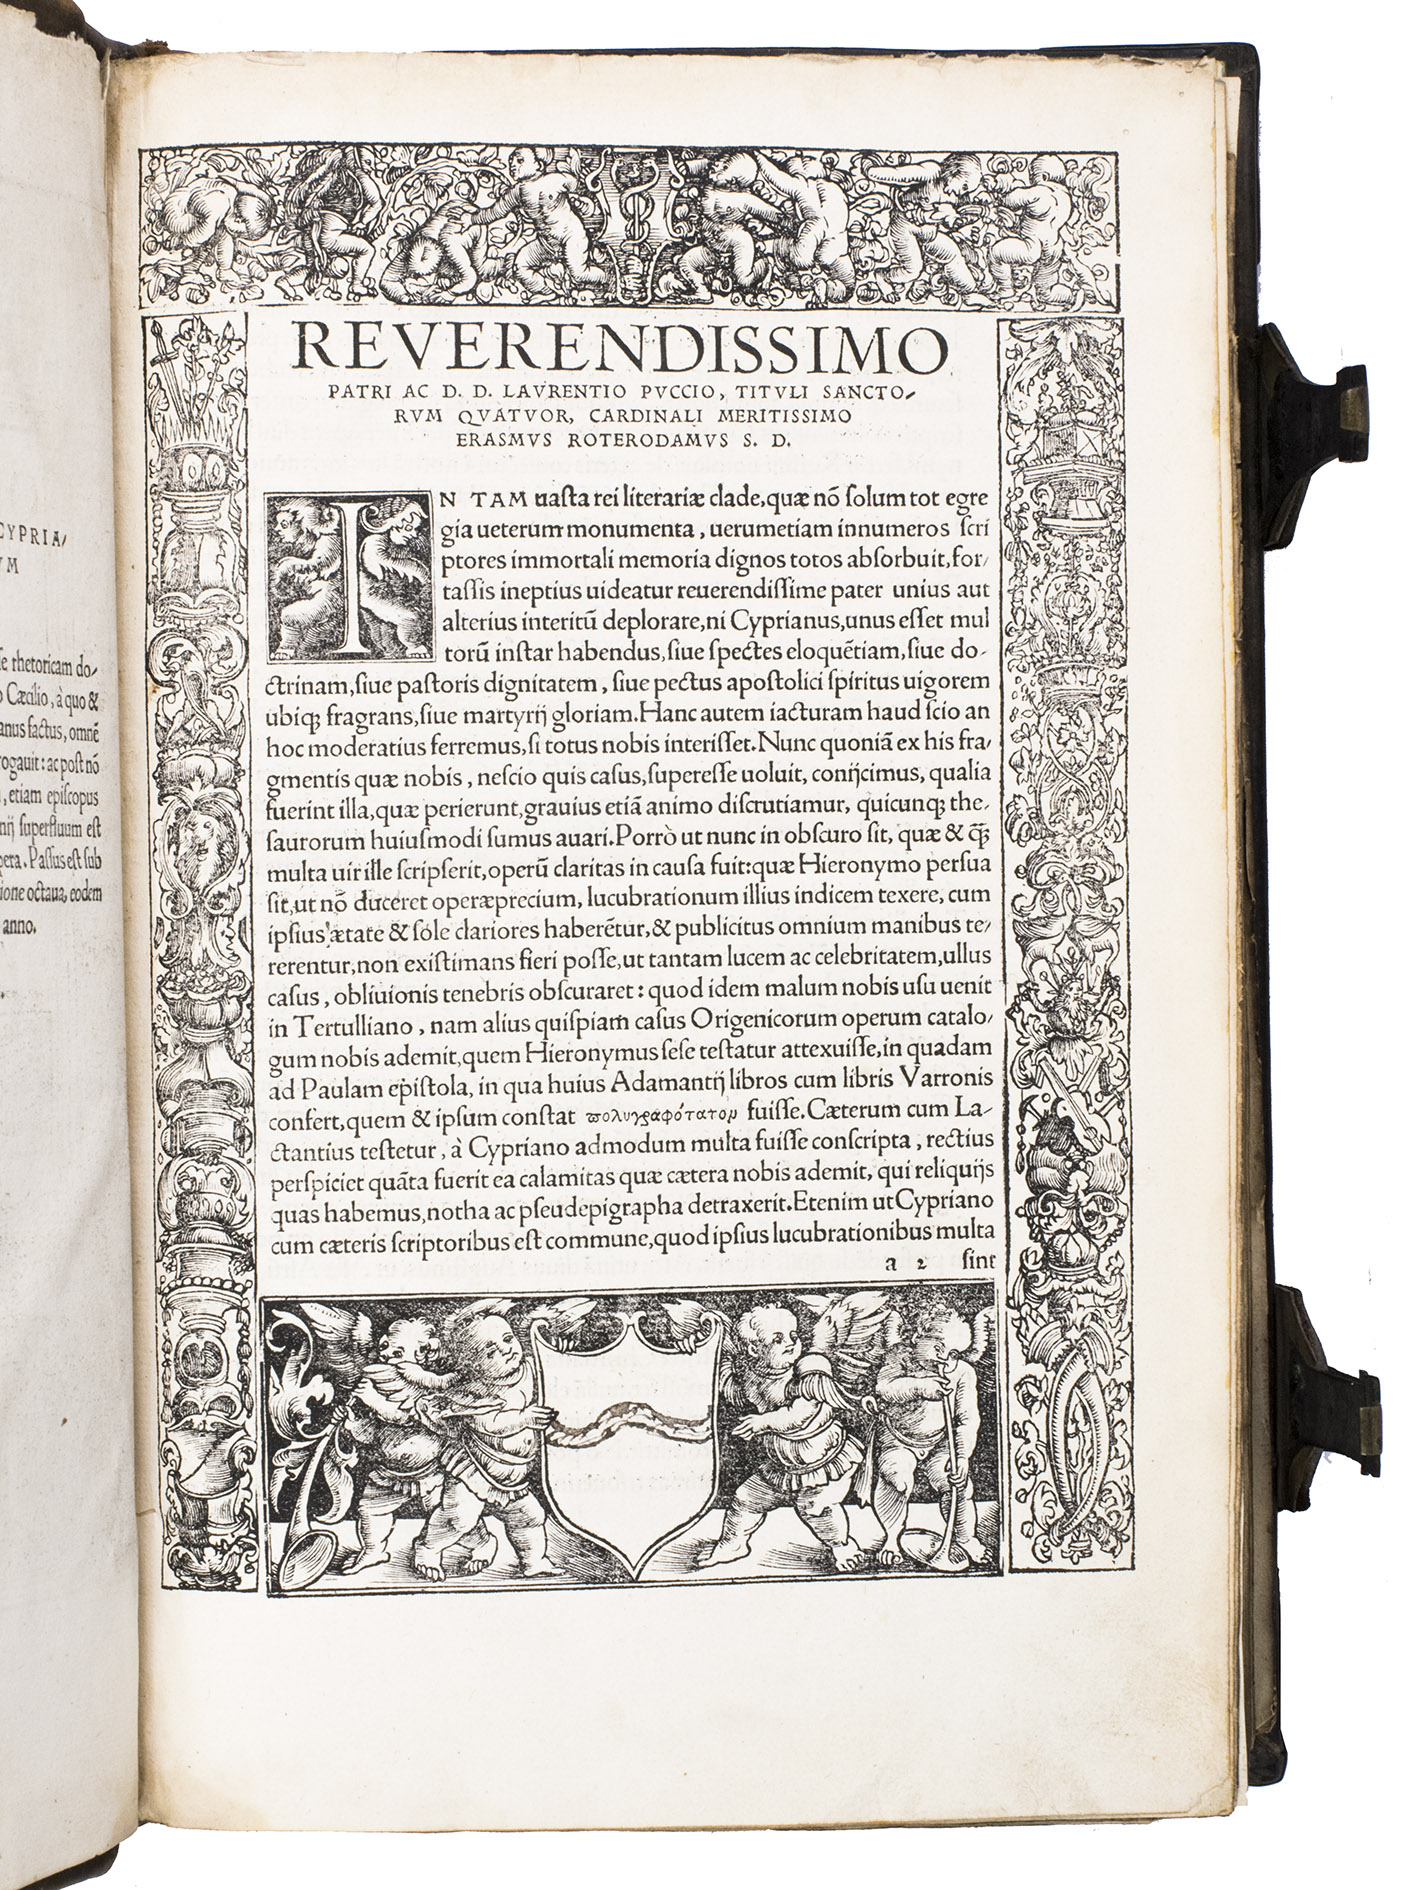 CYPRIA/
VM
se rhetoricam do/
o Cæcilio, à quo &
anus factus, omnē
rogauit: ac post nō
, etiam episcopus
nij superfluum est
pera. Passus est sub
tione octaua, eodem
anno.
REVERENDISSIMO
PATRI AC D. D. LAVRENTIO PVCCIO, TITVLI SANCTO/
RVM QVATVOR, CARDINALI MERITISSIMO
ERASMVS ROTERODAMVS S. D.
IN TAM uasta rei literariæ clade, quæ nō solum tot egre
gia ueterum monumenta, uerumetiam innumeros scri
ptores immortali memoria dignos totos absorbuit, for/
tassis ineptius uideatur reuerendissime pater unius aut
alterius interitū deplorare, ni Cyprianus, unus esset mul
torū instar habendus, siue spectes eloquētiam, siue do-
ctrinam, siue pastoris dignitatem, siue pectus apostolici spiritus uigorem
ubiqȝ fragrans, siue martyrij gloriam. Hanc autem iacturam haud scio an
hoc moderatius ferremus, si totus nobis interisset. Nunc quoniā ex his fra/
gmentis quæ nobis, nescio quis casus, superesse uoluit, conijcimus, qualia
fuerint illa, quæ perierunt, grauius etiā animo discrutiamur, quicunqȝ the-
saurorum huiusmodi sumus auari. Porrò ut nunc in obscuro sit, quæ & qȝ̄
multa uir ille scripserit, operū claritas in causa fuit: quæ Hieronymo persua
sit, ut nō duceret operæprecium, lucubrationum illius indicem texere, cum
ipsius ætate & sole clariores haberētur, & publicitus omnium manibus te/
rerentur, non existimans fieri posse, ut tantam lucem ac celebritatem, ullus
casus, obliuionis tenebris obscuraret: quod idem malum nobis usu uenit
in Tertulliano, nam alius quispiam casus Origenicorum operum catalo/
gum nobis ademit, quem Hieronymus sese testatur attexuisse, in quadam
ad Paulam epistola, in qua huius Adamantij libros cum libris Varronis
confert, quem & ipsum constat πολυγραφότατον fuisse. Cæterum cum La-
ctantius testetur, à Cypriano admodum multa fuisse conscripta, rectius
perspiciet quāta fuerit ea calamitas quæ cætera nobis ademit, qui reliquijs
quas habemus, notha ac pseudepigrapha detraxerit. Etenim ut Cypriano
cum cæteris scriptoribus est commune, quod ipsius lucubrationibus multa
a 2 sint